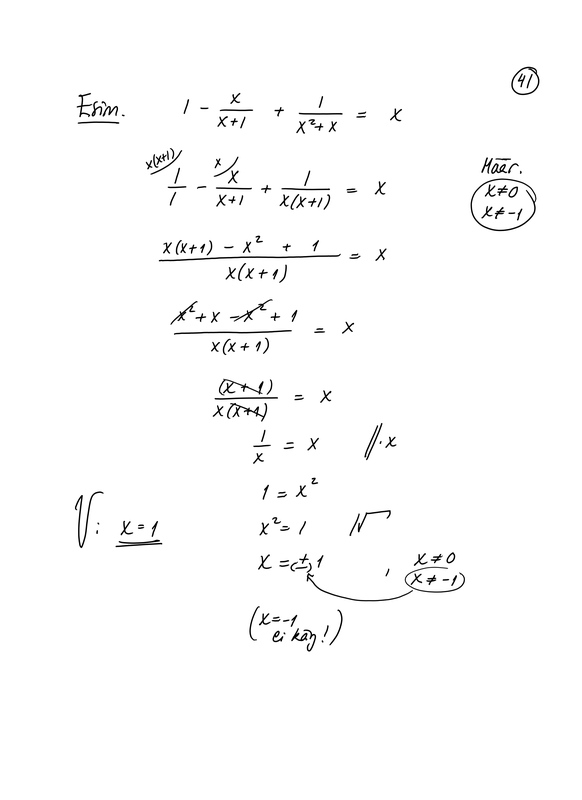 41
Esim. 1 - x/(x+1) + 1/(x²+x) = x
x(x+1) x
1/1 - x/(x+1) + 1/(x(x+1)) = x
Määr.
x≠0
x≠-1
(x(x+1) - x² + 1)/(x(x+1)) = x
(x² + x - x² + 1)/(x(x+1)) = x
(x+1)/(x(x+1)) = x
1/x = x ∥·x
1 = x²
x² = 1 √
V: x = 1
x = (±)1 , x≠0
x≠-1
(x=-1
ei käy!)